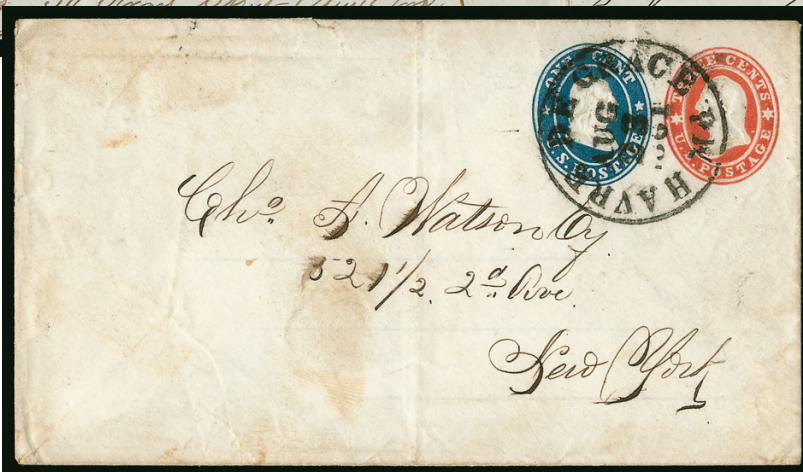 ONE CENT
U.S. POSTAGE
THREE CENTS
U.S. POSTAGE
HAVRE DE GRACE Md.
AUG
Chs. A. Watson
521 1/2. 2d Ave.
New York